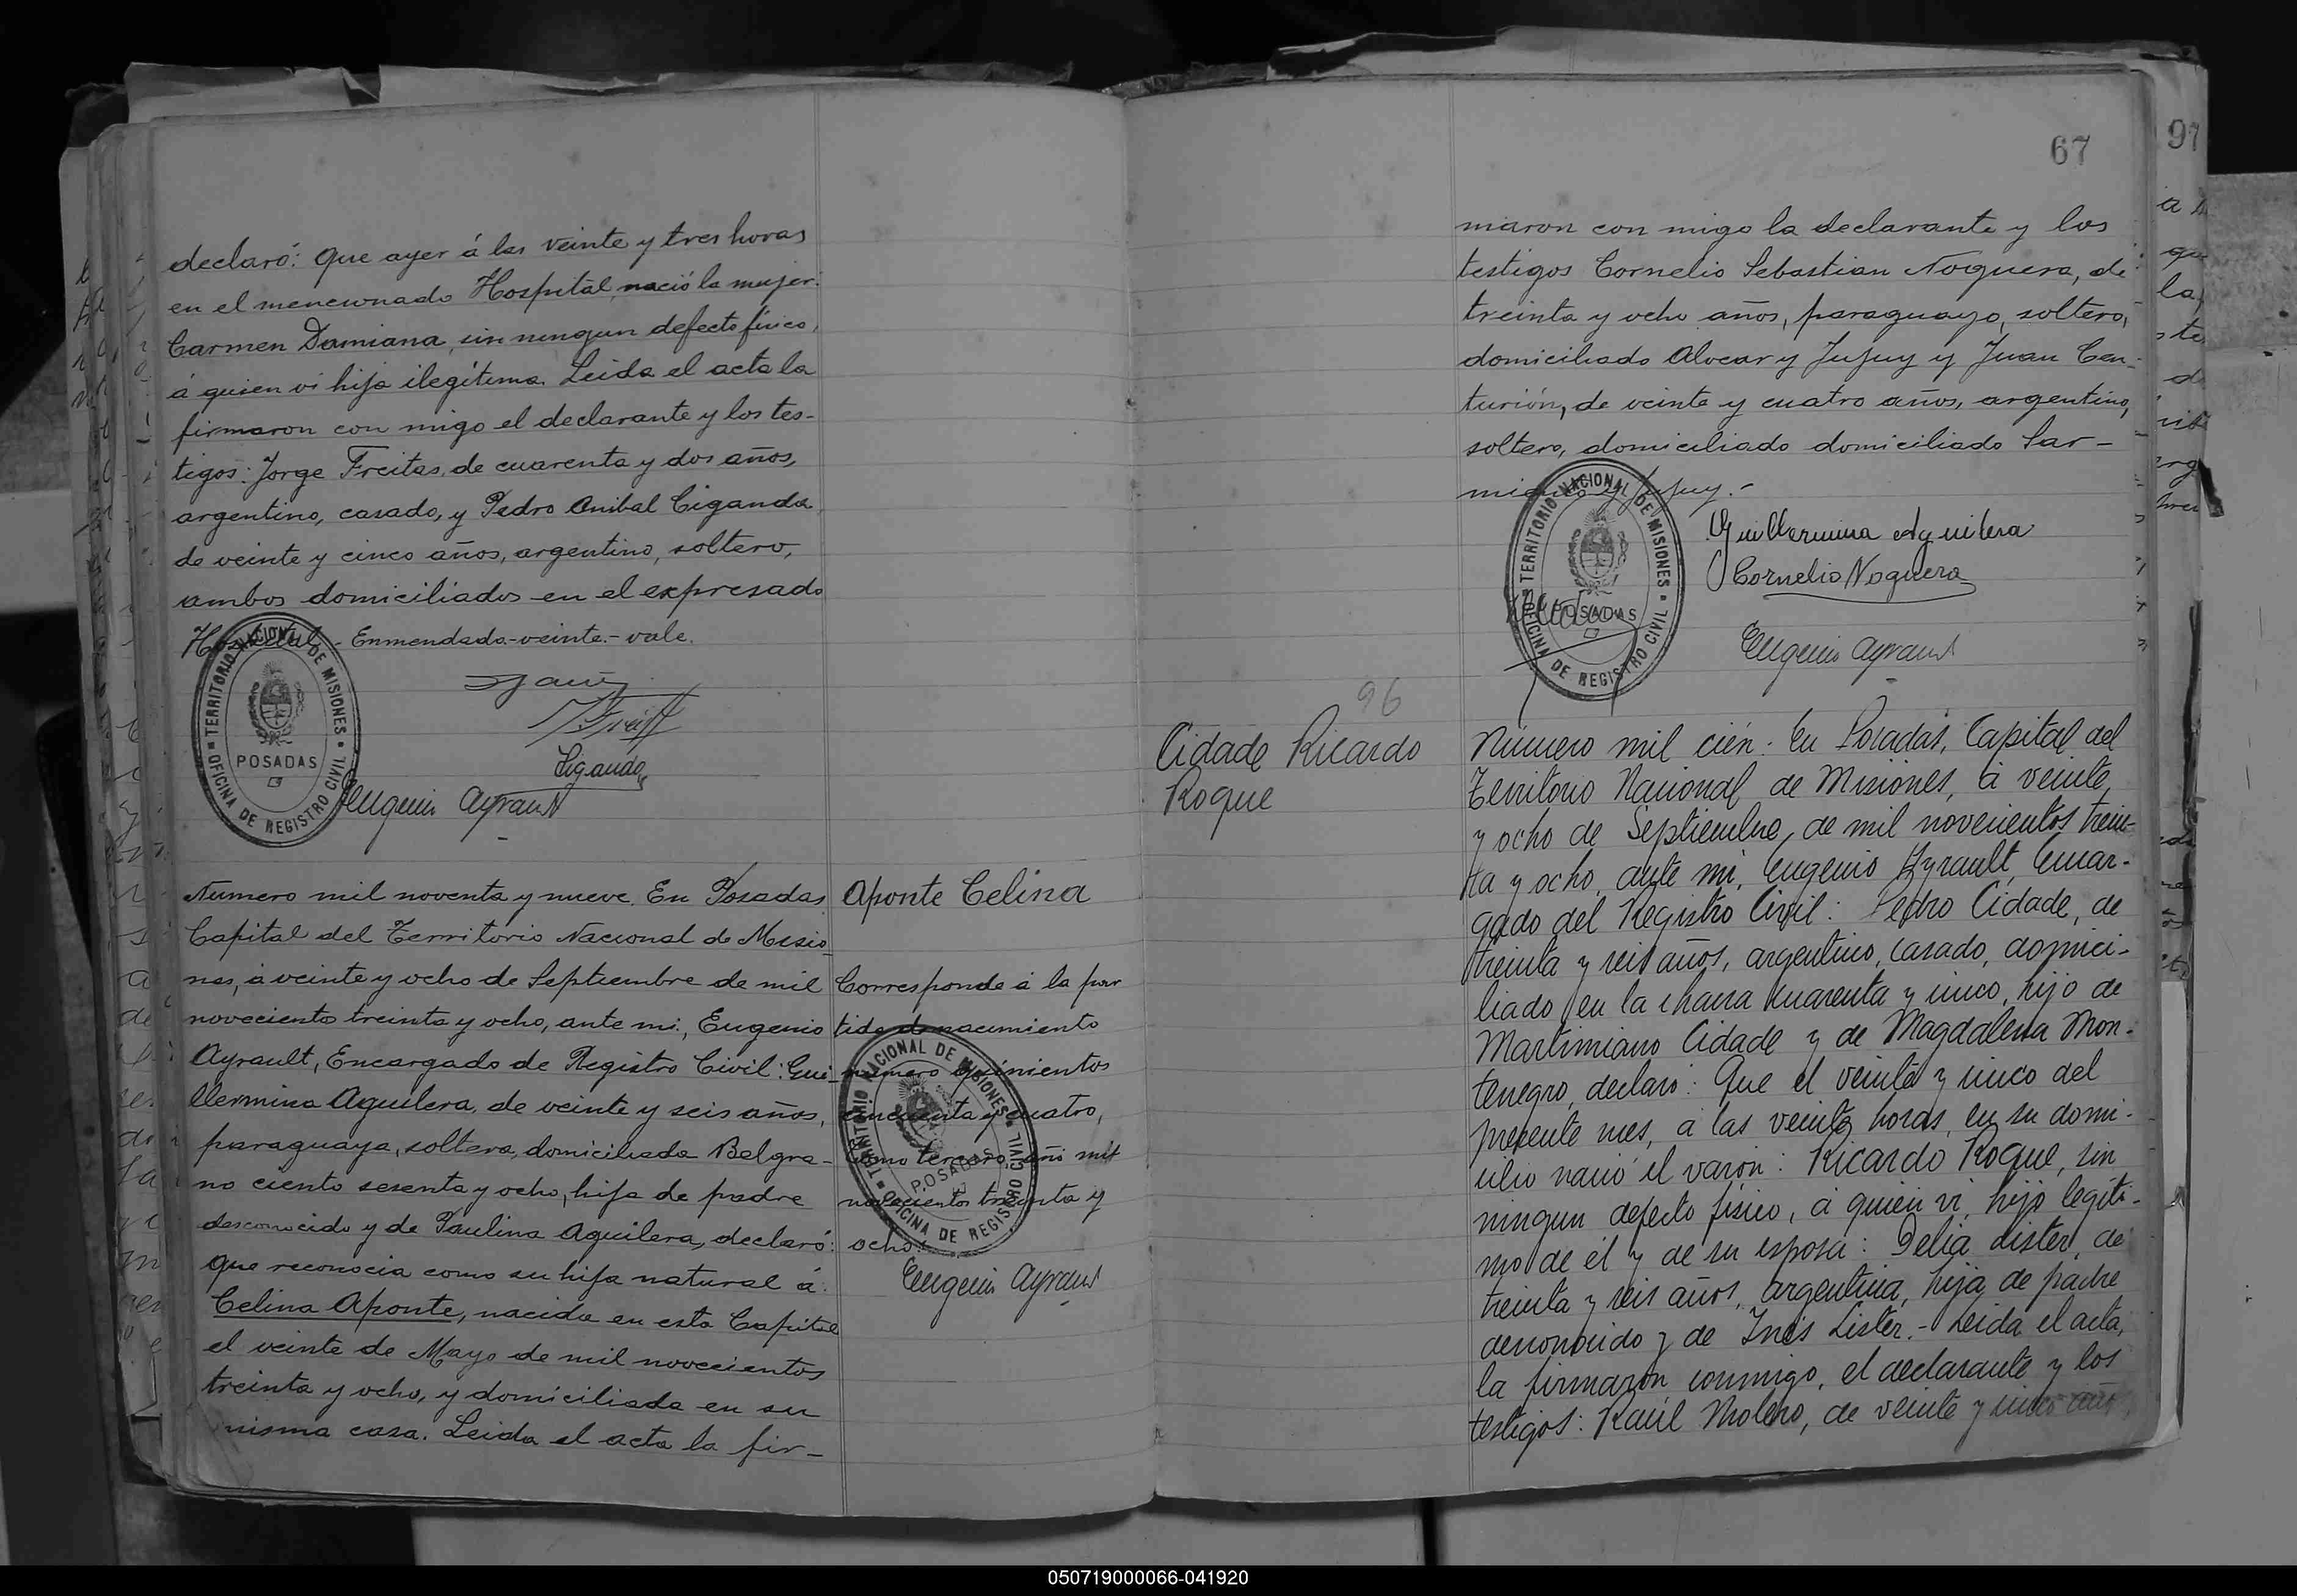 declaró: Que ayer á las veinte y tres horas
en el mencionado Hospital, nació la mujer:
Carmen Damiana, sin ningun defecto físico,
á quien vi hija ilegítima. Leida el acta la
firmaron con migo el declarante y los tes-
tigos: Jorge Freitas, de cuarenta y dos años,
argentino, casado, y Pedro Anibal Ciganda,
de veinte y cinco años, argentino, soltero,
ambos domiciliados en el expresado
Hospital.- Enmendado-veinte.-vale.
TERRITORIO NACIONAL DE MISIONES
POSADAS
OFICINA DE REGISTRO CIVIL
Ciganda
Eugenio Ayrault
Numero mil noventa y nueve. En Posadas
Capital del Territorio Nacional de Misio-
nes, á veinte y ocho de Septiembre de mil
novecientos treinta y ocho, ante mi, Eugenio
Ayrault, Encargado de Registro Civil: Gui-
llermina Aguilera, de veinte y seis años,
paraguaya, soltera, domiciliada Belgra-
no ciento sesenta y ocho, hija de padre
desconocido y de Paulina Aguilera, declaró:
que reconocia como su hija natural á
Celina Aponte, nacida en esta Capital
el veinte de Mayo de mil novecientos
treinta y ocho, y domiciliada en su
misma casa. Leida el acta la fir-
Aponte Celina
Corresponde á la par
tida de nacimiento
número quinientos
cincuenta y cuatro,
tomo tercero año mil
novecientos treinta y
ocho.
TERRITORIO NACIONAL DE MISIONES
POSADAS
OFICINA DE REGISTRO CIVIL
Eugenio Ayrault
67
maron con migo la declarante y los
testigos Cornelio Sebastian Noguera, de
treinta y ocho años, paraguayo, soltero,
domiciliado Alvear y Jujuy y Juan Cen-
turión, de veinte y cuatro años, argentino,
soltero, domiciliado domiciliado Sar-
miento y Jujuy.-
TERRITORIO NACIONAL DE MISIONES
POSADAS
OFICINA DE REGISTRO CIVIL
Guillermina Aguilera
Cornelio Noguera
Eugenio Ayrault
96
Cidade Ricardo
Roque
Número mil cién: En Posadas, Capital del
Territorio Nacional de Misiones, á veinte
y ocho de Septiembre, de mil novecientos trein-
ta y ocho, ante mi, Eugenio Ayrault, Encar-
gado del Registro Civil: Pedro Cidade, de
treinta y seis años, argentino, casado, domici-
liado en la chacra cuarenta y cinco, hijo de
Martimiano Cidade y de Magdalena Mon-
tenegro, declaró: Que el veinte y cinco del
presente mes, á las veinte horas, en su domi-
cilio nació el varón: Ricardo Roque, sin
ningun defecto físico, á quien vi, hijo legíti-
mo de él y de su esposa: Delia Lister, de
treinta y seis años, argentina, hija de padre
desconocido y de Inés Lister.- Leida el acta,
la firmaron conmigo, el declarante y los
testigos: Raúl Molero, de veinte y cinco años,
97
050719000066-041920